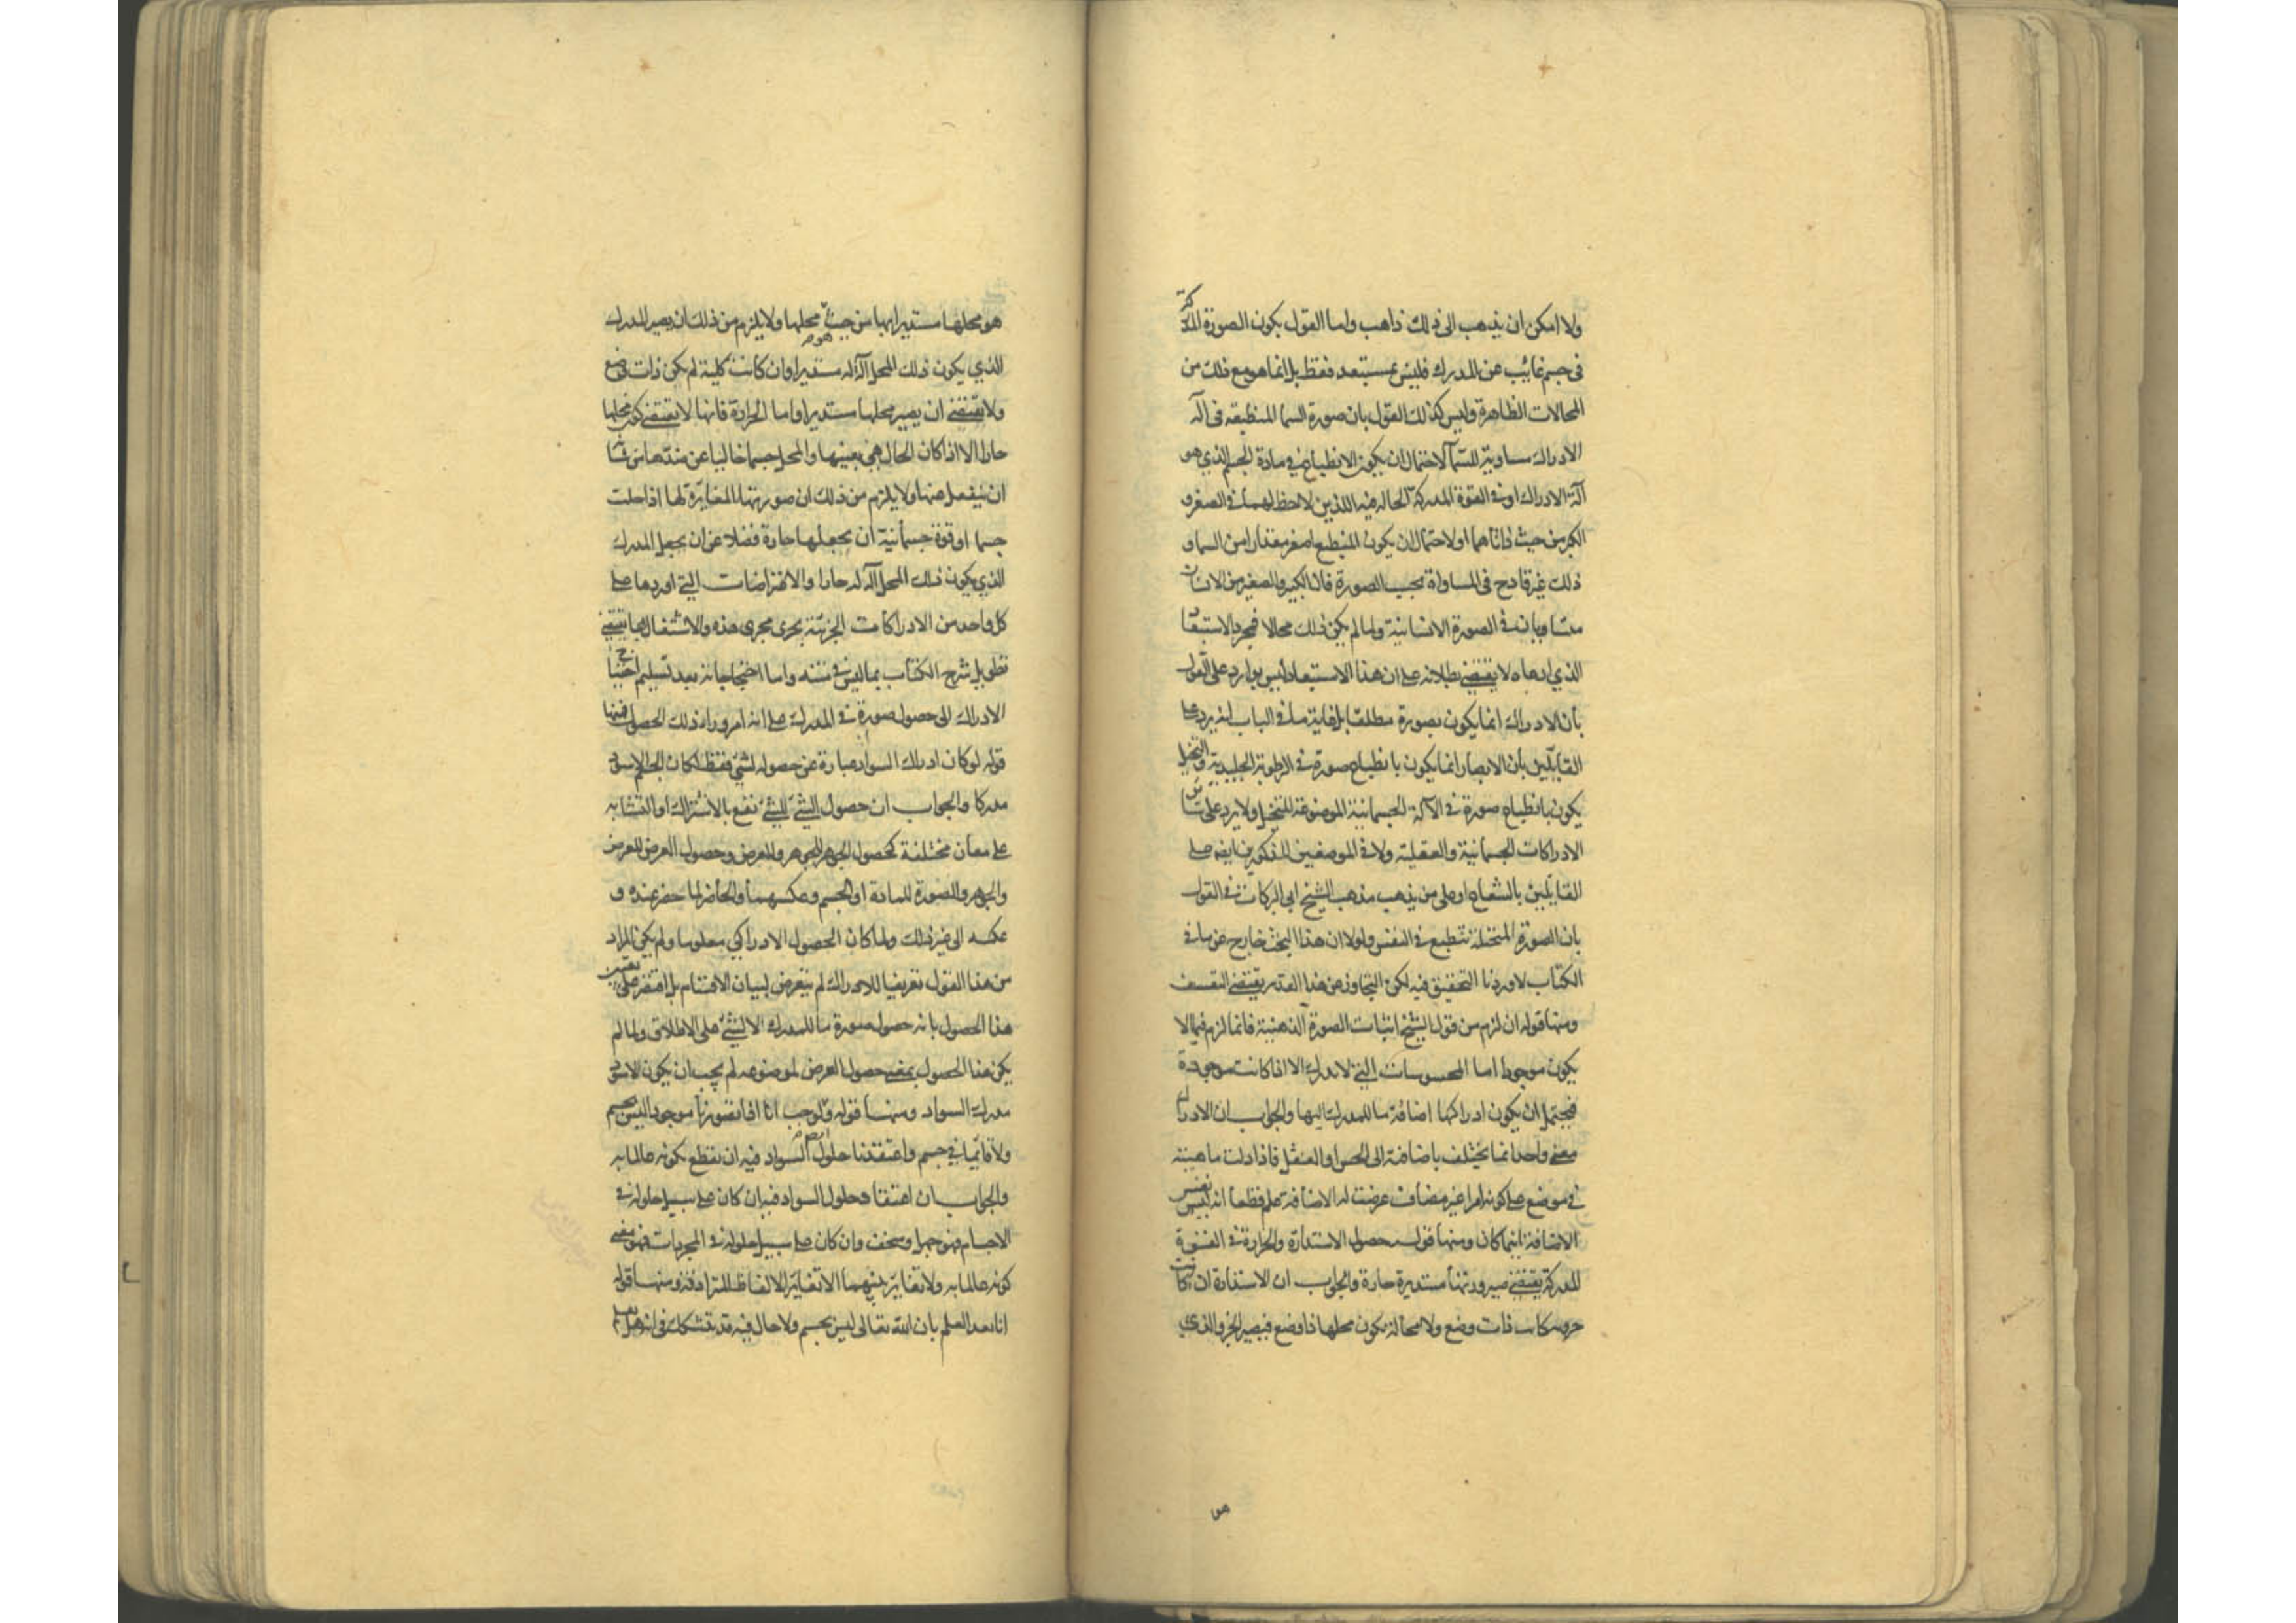 ولا امكن ان يذهب الى ذلك ذاهب واما القول بكون الصورة المدركة
في جسم غائب عن المدرك فليس بمستبعد فقط بل انما هو مع ذلك من
المحالات الظاهرة وليس كذلك القول بان صورة السما المنطبعه في آلة
الادراك مساوية للسمآ لاحتمال ان يكون الانطباع في مادة الجسم الذي هو
آلة الادراك او في القوة المدركة الحالة فيه اللذين لا حظ لهما في الصغر و
الكبر من حيث ذاتاهما او لاحتمال ان يكون المنطبع اصغر مقدارا من السما و
ذلك غير قادح في المساواة بحسب الصورة فان الكبير والصغير من الانسان
متساويان في الصورة الانسانية ولما لم يكن ذلك محالا فمجرد الاستبعاد
الذي ادعاه لا يقتضي بطلانه على ان هذا الاستبعاد ليس بوارد على القول
بأن الادراك انما يكون بصورة مطلقا بل غاية ما في الباب انه يرد على
القايلين بأن الابصار انما يكون بانطباع صورة في الرطوبة الجليدية والتخيل
يكون بانطباع صورة في الآلة الجسمانية الموضوعة للتخيل ولا يرد على سائر
الادراكات الجسمانية والعقلية ولا في الموضعين المذكورين ايضا على
القايلين بالشعاع او على من يذهب مذهب الشيخ ابي البركات في القول
بان الصورة المتخيلة تنطبع في النفس ولولا ان هذا البحث خارج عن ما في
الكتاب لاوردنا التحقيق فيه لكن التجاوز عن هذا القدر يقتضي التعسف
ومنها قوله ان لزم من قول الشيخ اثبات الصورة الذهنية فانما لزم فيما لا
يكون موجودا اما المحسوسات التي لا تدرك الا اذا كانت موجودة
فيحتمل ان يكون ادراكها اضافة ما للمدرك اليها والجواب ان الادراك
معنى واحد انما يختلف باضافته الى الحس او العقل فاذا دلت ماهيته
في موضع على كونه امرا غير مضاف عرضت له الاضافة علم قطعا انه ليس نفس
الاضافة اينما كان ومنها قوله حصول الاستدارة والحرارة في القوة
المدركة يقتضي صيرورتها مستديرة حارة والجواب ان الاستدارة ان كانت
جزئية كانت ذات وضع ولا محالة يكون محلها ذا وضع فيصير الجزو الذي
هو
هو محلها مستديرا بها من حيث هو محلها ولا يلزم من ذلك ان يصير المدرك
الذي يكون ذلك المحل آلة له مستديرا وان كانت كلية لم يكن ذات وضع
ولا يقتضي ان يصير محلها مستديرا واما الحرارة فانها لا يقتضي كون محلها
حارا الا اذا كان الحال هي بعينها والمحل جسما خاليا عن ضدها من شأنه
ان ينفعل عنها ولا يلزم من ذلك ان صورتها المغايرة لها اذا حلت
جسما او قوة جسمانية ان يجعلها حارة فضلا عن ان يجعل المدرك
الذي يكون ذلك المحل آلة له حارا والاعتراضات التي اوردها على
كل واحد من الادراكات الجزئية يجرى مجرى هذه والاشتغال بها يقتضي
تطويل شرح الكتاب بما ليس في متنه واما احتجاجاته بعد تسليم احتياج
الادراك الى حصول صورة في المدرك على انه امر وراء ذلك الحصول فمنها
قوله لو كان ادراك السواد عبارة عن حصوله لشيء فقط لكان الجسم الاسود
مدركا والجواب ان حصول الشيء للشيء يقع بالاشتراك او التشابه
على معان مختلفة كحصول الجوهر للجوهر وللعرض وحصول العرض للعرض
والجوهر والصورة للمادة او الجسم وعكسهما والحاضر لما حضر عنده و
عكسه الى غير ذلك ولما كان الحصول الادراكي معلوما ولم يكن المراد
من هذا القول تعريفا للادراك لم يتعرض لبيان الاقسام بل اقتصر على تعيين
هذا الحصول بانه حصول صورة ما للمدرك لا لشيء على الاطلاق ولما لم
يكن هذا الحصول بمعنى حصول العرض لموضوعه لم يجب ان يكون الاسود
مدرك السواد ومنها قوله ولوجب انا اذا تصورنا موجودا ليس بجسم
ولا قائما في جسم واعتقدنا حلول السواد فيه ان نقطع بكونه عالما به
والجواب ان اعتقاد حلول السواد فيه ان كان على سبيل حلوله في
الاجسام فهو جهل وسخف وان كان على سبيل حلوله في المجردات فهو معنى
كونه عالما به ولا تغاير بينهما الا تغاير الالفاظ المترادفة ومنها قوله
انا بعد العلم بان الله تعالى ليس بجسم ولا حال فيه قد نتشكك في انه هل